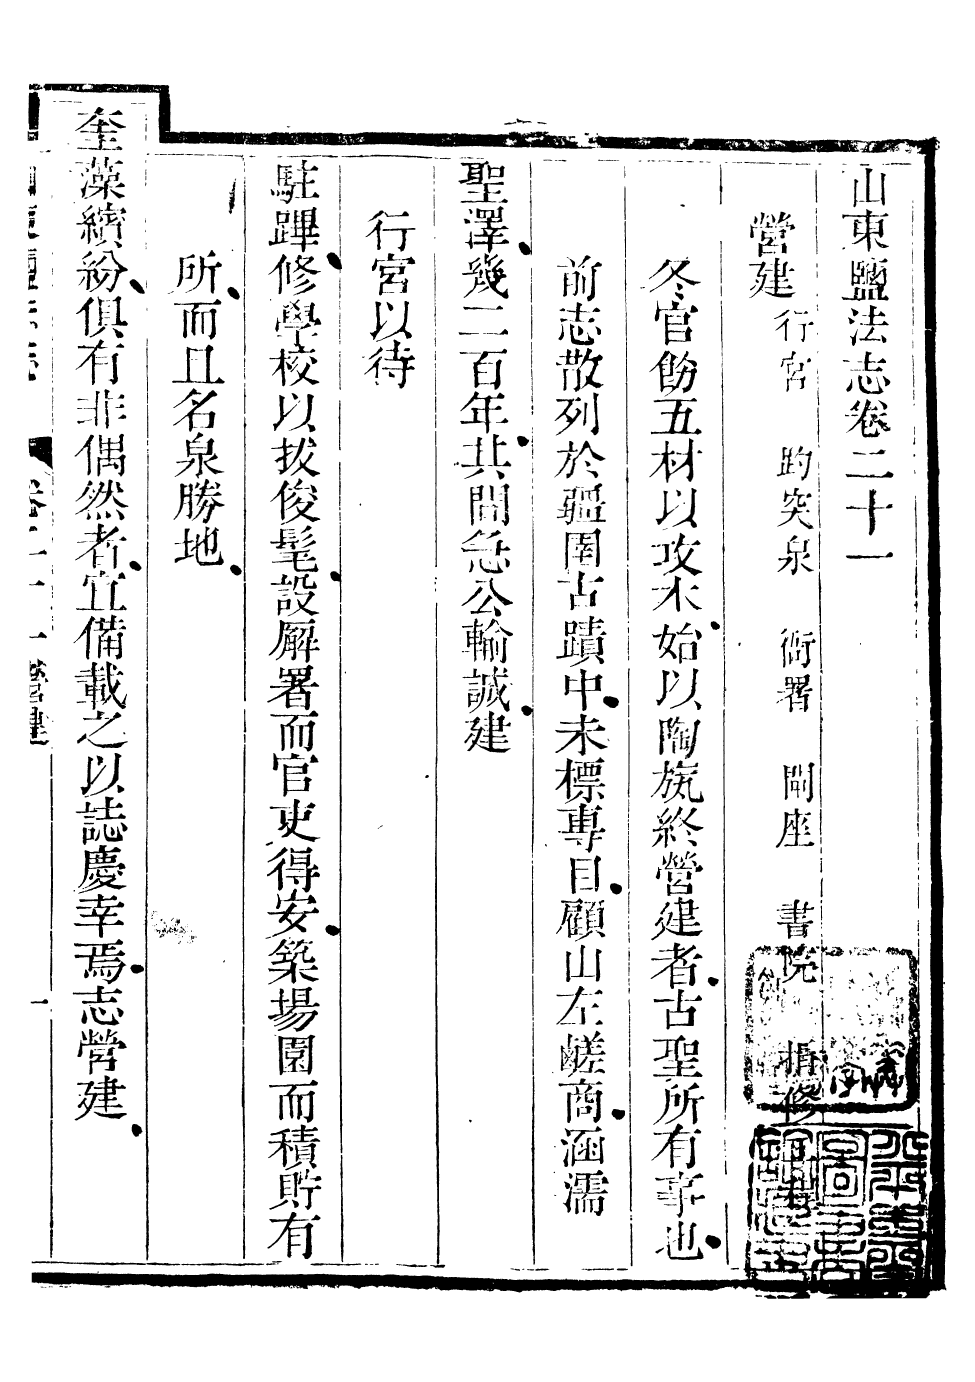 山東鹽法志卷二十一
營建 行宮 趵突泉 衙署 閘座 書院 捐修
冬官飭五材以攻木始以陶旊終營建者古聖所有事也
前志散列於疆圉古蹟中未標專目顧山左鹺商涵濡
聖澤幾二百年共間急公輸誠建
行宮以待
駐蹕修學校以拔俊髦設廨署而官吏得安築場園而積貯有
所而且名泉勝地
奎藻繽紛俱有非偶然者宜備載之以誌慶幸焉志營建
卷二十一 營建 一